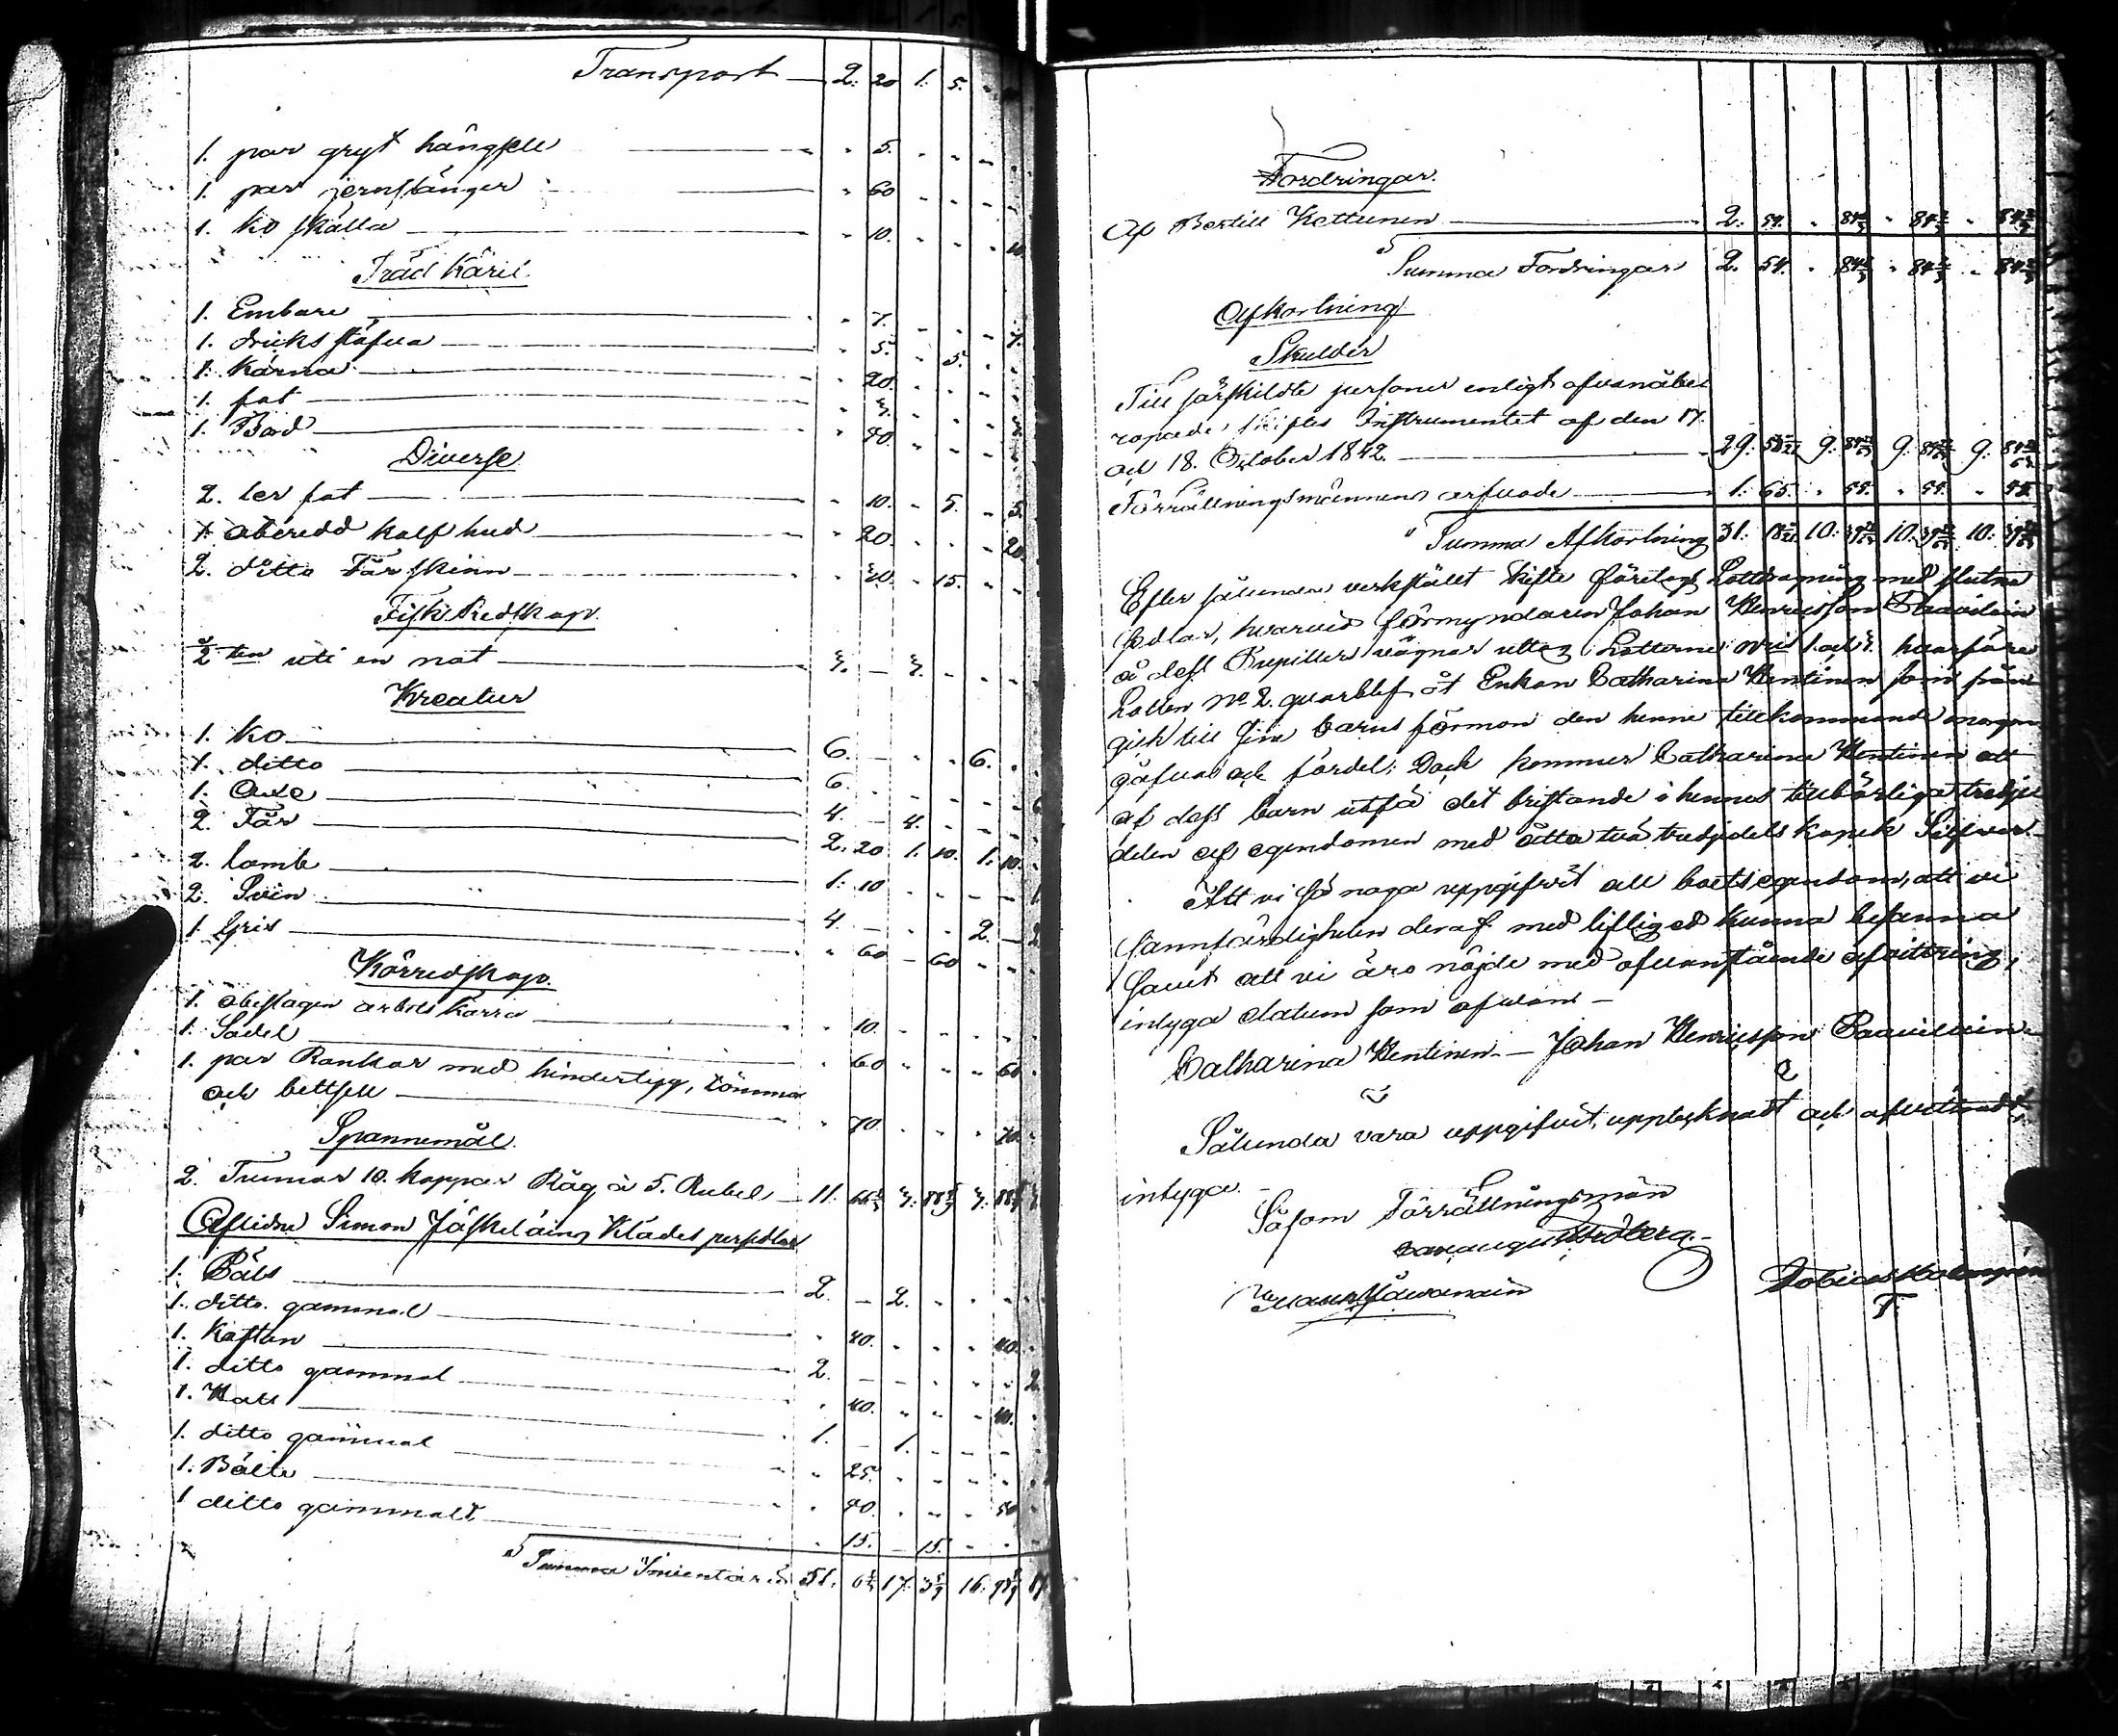 Transport 2. 20 1. 5.
1. par gryt hängsle " 5.
1. par jernstänger " 60
1. ko skälla " 10. 10
Träd Käril
1. Embare " 7. 7.
1. dricks stäfva " 5. 5.
1. Kärna " 20.
1. fat " 3. 3
1. Bord " 40.
Diverse
2. ler fat " 10. " 5. " 5.
1 oberedd kalf hud " 20. 20
2. ditto Får skinn " 30. " 15.
Fisk Redskap.
2 ten uti en not 3. — 3.
Kreatur
1. ko 6. 6.
1. ditto 6. 6
1. Oxe 4. 4.
2. Får 2. 20 1. 10. 1. 10.
2. lamb 1. 10 1
2. Svin 4. 2. 2
1 Gris " 60 — 60
Körredskap.
1. obeslagen arbets kärra " 10.
1. Sadel " 60 60
1. par Rankor med hindertyg, tömmar
och bettsle " 70 70
Spannemål.
2. Tunnor 10. kappar Råg à 5. Rubel 11. 66⅔ 3. 88 3. 88
Aflidne Simon Jäskeläins Klädes persedlar
1. Päls 2. — 2.
1. ditto gammal " 40. 40.
1. Kaftan 2. 2
1. ditto gammal " 40. 40.
1. Hatt 1. 1.
1. ditto gammal " 25.
1. Bälte " 50. 50
1 ditto gammalt " 15. 15.
Summa Inventarium 51. 6⅔ 17. 3 5/9 16. 98 17
Fordringar.
Af Bertill Kettunen 2. 54. " 84⅔ " 84⅔ " 84⅔
Summa Fordringar 2. 54. " 84⅔ " 84⅔ " 84⅔
Afkortning
Skulder
Till särskildte personer enligt ofvanåbe
ropade skiftes Instrumentet af den 17.
och 18. October 1842. 29. 9. 9. 9.
Förrättningsmännens arfvode 1. 65. " 55. " 55. " 55.
Summa Afkortning 31. 10. 10. 10.
Efter sålunda verkstäldt skifte företogs Lottdragning med slutna
sedlar, hvarvid förmyndaren Johan Henricsson Paavilain
å dess Pupillers vägnar uttog Lotterne N:ris 1. och 3. hvarföre
Lotten No 2. qvarblef åt Enkan Catharina Hentinen som från
gick till sine barns förmon den henne tillkommande morgon
gåfvan och fördel; Dock kommer Catharina Hentinen att
af dess barn utfå det bristande i hennes tillbörliga tredje
delen af egendomen med åtta två tredjedels kopek Silfver.
Att vi så noga uppgifvit all boets egendom, att vi
sannfärdigheten deraf med liflig ed kunna besanna
samt att vi äro nöjde med ofvanstående afvittring,
intyga datum som ofvan —
Catharina Hentinen — Johan Henricsson Paavilain
Sålunda vara uppgifvit, upptecknadt och afvittradt,
intyga.
Såsom Förrättningsmän